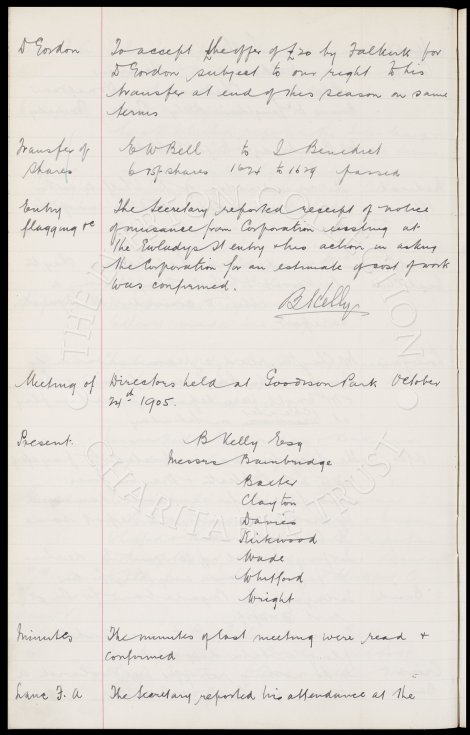 D Gordon To accept the offer of £20 by Falkirk for
D Gordon subject to our right to his
transfer at end of this season on same
terms
Transfer of E W Bell to I Benedict
Shares 6 75/- shares 1624 to 1629 passed
Entry The Secretary reported receipt of notice
flagging &c of nuisance from Corporation existing at
the Gwladys St entry & his action in asking
the Corporation for an estimate of cost of work
was confirmed.
B Kelly
Meeting of Directors held at Goodison Park October
24th 1905.
Present. B Kelly Esq
Messrs Bainbridge
Baxter
Clayton
Davies
Kirkwood
Wade
Whitford
Wright
Minutes The minutes of last meeting were read &
confirmed
Lanc F. A The Secretary reported his attendance at the